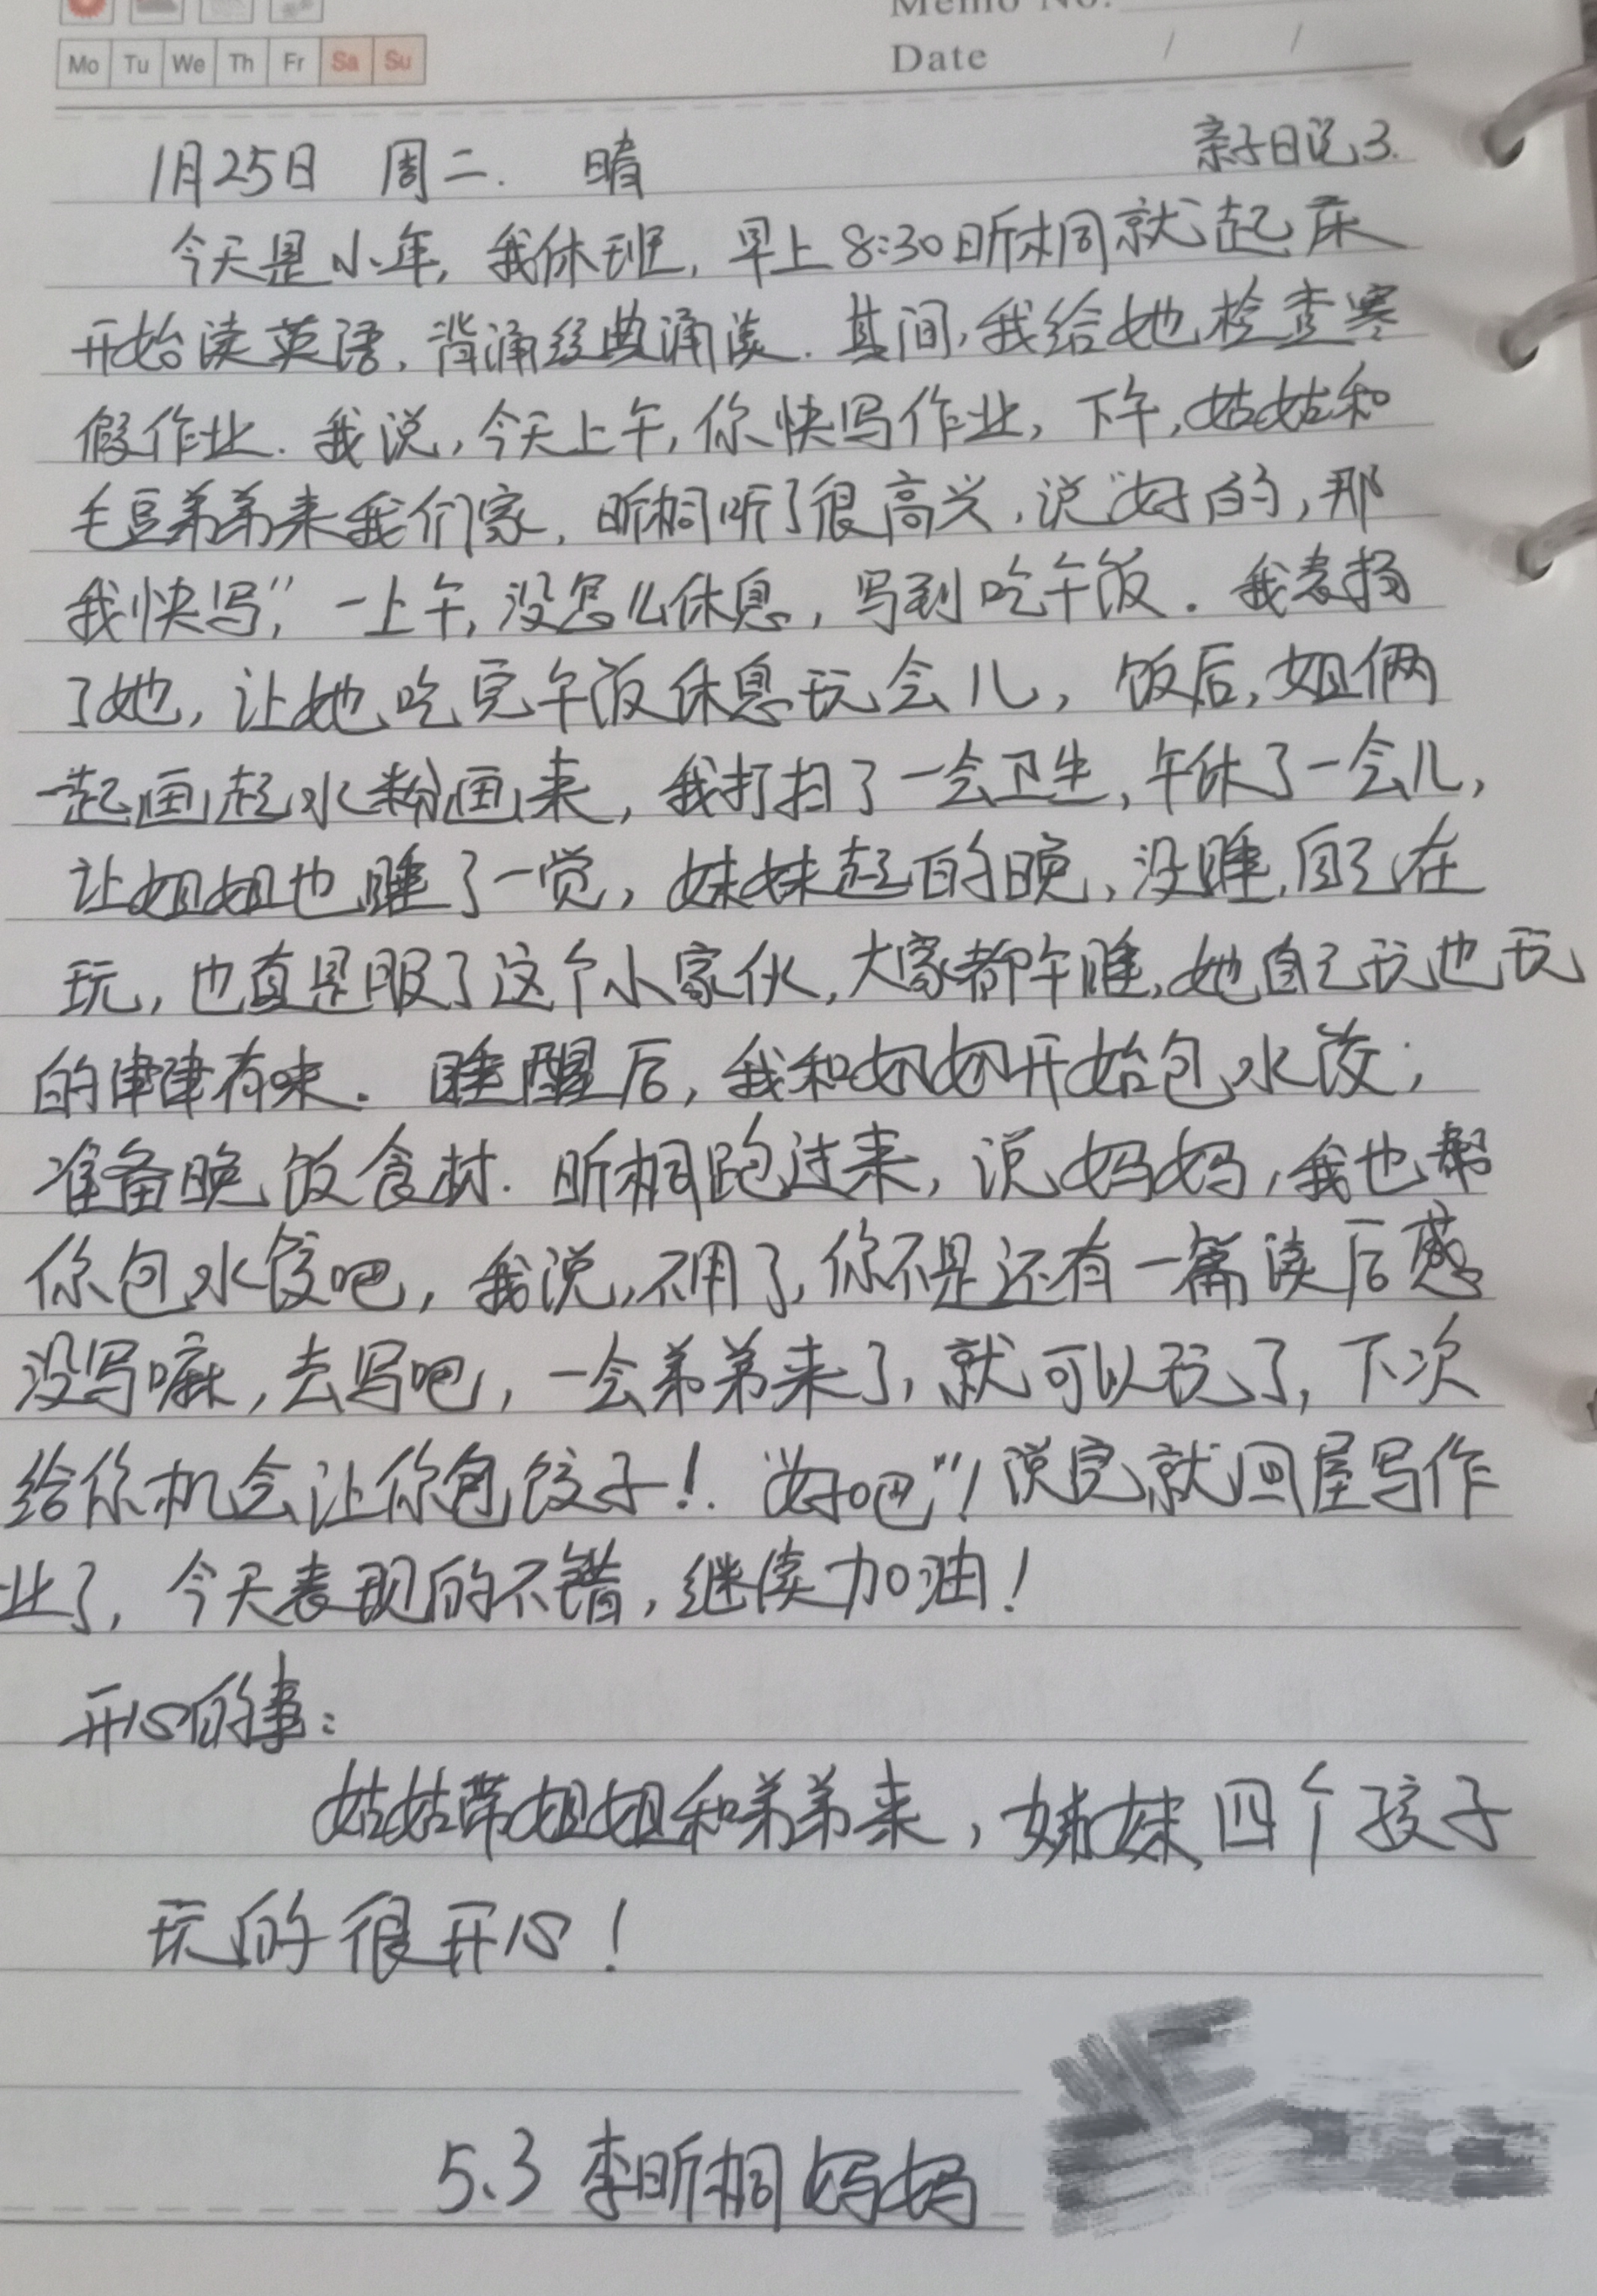 Memo No.
Mo Tu We Th Fr Sa Su
Date / /
1月25日 周二. 晴 亲子日记3.
今天是小年, 我休班, 早上8:30昕桐就起床
开始读英语, 背诵经典诵读. 其间, 我给她检查寒
假作业. 我说, 今天上午, 你快写作业, 下午, 姑姑和
毛豆弟弟来我们家, 昕桐听了很高兴, 说“好的, 那
我快写”, 一上午, 没怎么休息, 写到吃午饭. 我表扬
了她, 让她吃完午饭休息玩会儿, 饭后, 姐俩
一起画起水粉画来, 我打扫了一会卫生, 午休了一会儿,
让姐姐也睡了一觉, 妹妹起的晚, 没睡, 自己在
玩, 也真是服了这个小家伙, 大家都午睡, 她自己玩也玩
的津津有味. 睡醒后, 我和奶奶开始包水饺;
准备晚饭食材. 昕桐跑过来, 说妈妈, 我也帮
你包水饺吧, 我说, 不用了, 你不是还有一篇读后感
没写嘛, 去写吧, 一会弟弟来了, 就可以玩了, 下次
给你机会让你包饺子!. “好吧”! 说完就回屋写作
业了, 今天表现的不错, 继续加油!
开心的事:
姑姑带姐姐和弟弟来, 姊妹四个孩子
玩的很开心!
5.3 李昕桐妈妈